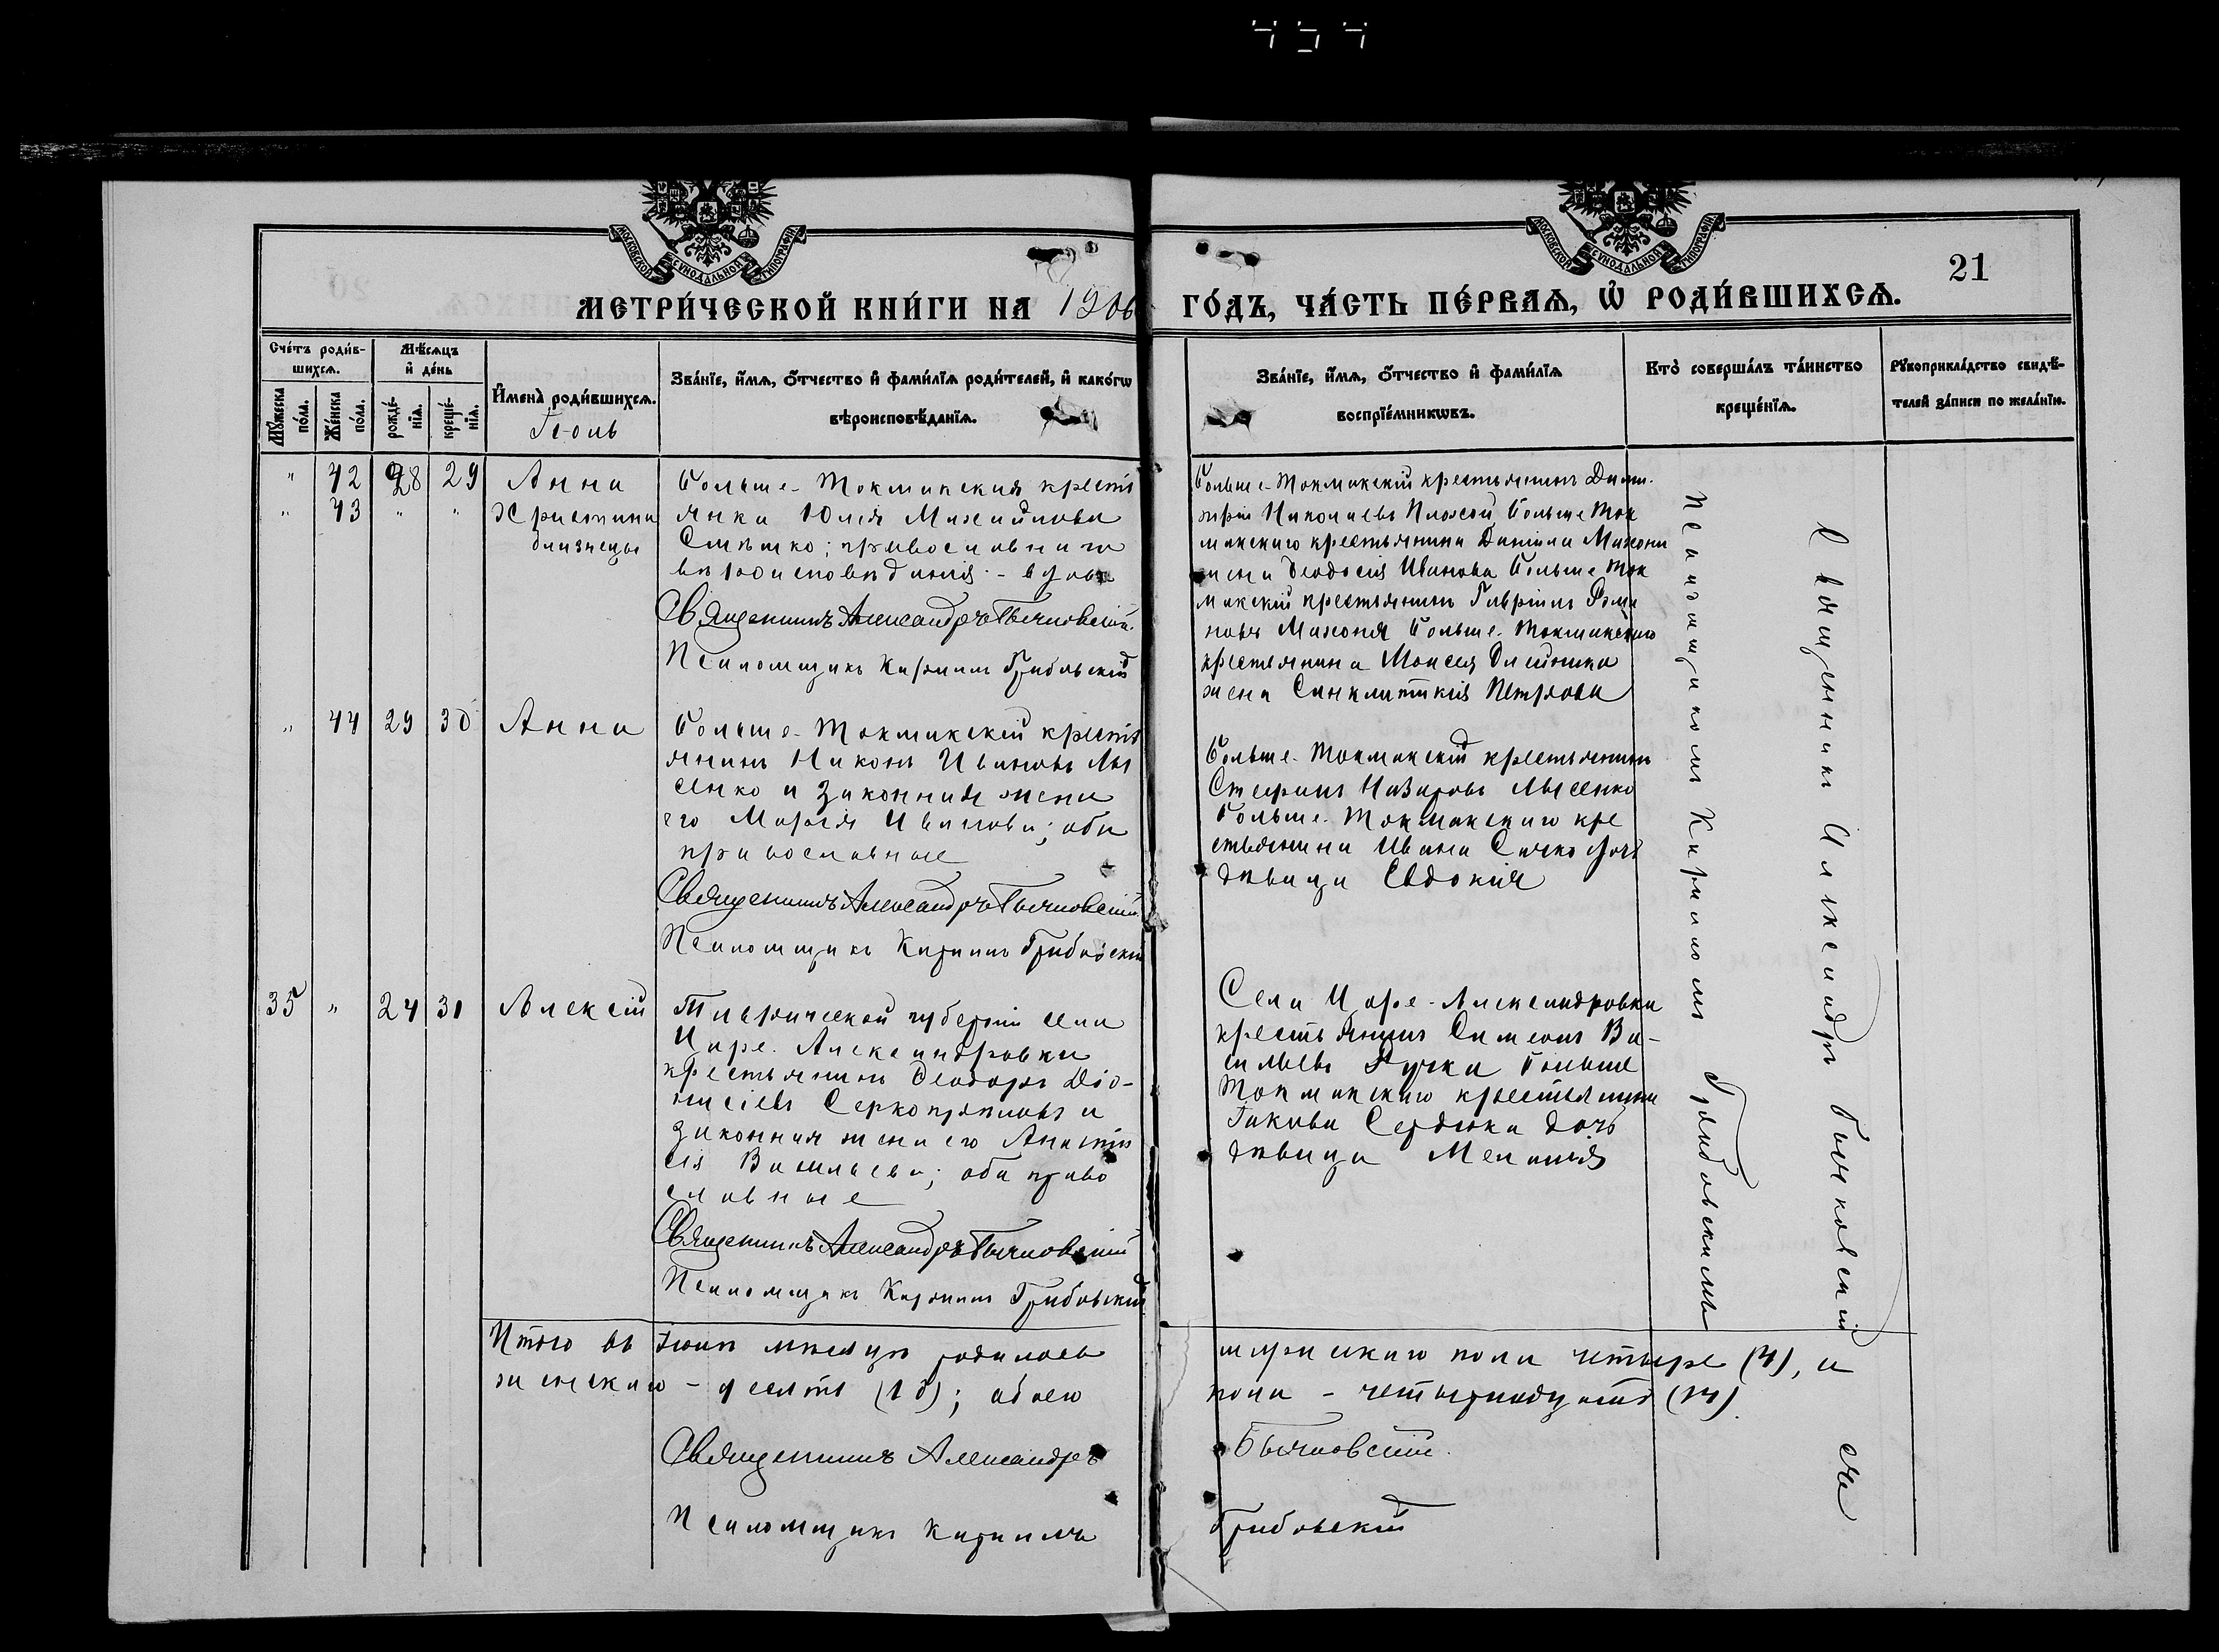 434
МОСКОВСКОЙ СѴНОДАЛЬНОЙ ТИПОГРАФІИ
МОСКОВСКОЙ СѴНОДАЛЬНОЙ ТИПОГРАФІИ
21
МЕТРИ́ЧЕСКОЙ КНИ́ГИ НА 1906 ГО́ДЪ, ЧА́СТЬ ПЕ́РВАѦ, Ѡ҆ РОДИ́ВШИХСѦ.
Сче́тъ роди́в-
шихсѧ.
Мꙋ́жеска по́ла.
Же́нска по́ла.
Мѣ́сѧцъ
и҆ де́нь
рожде́-
нїѧ.
креще́-
нїѧ.
И҆мена̀ роди́вшихсѧ.
Іюль
Зва́нїе, и҆́мѧ, ѻ҆́тчество и҆ фами́лїѧ роди́телей, и҆ како́гѡ
вѣроисповѣ́данїѧ.
Зва́нїе, и҆́мѧ, ѻ҆́тчество и҆ фами́лїѧ
воспрїе́мникѡвъ.
Кто̀ соверша́лъ та́инство
креще́нїѧ.
Рꙋкоприкла́дство свидѣ́-
телей за́писи по жела́нїю.
" 42 28 29 Анна
" 43 " " Христина
близнецы
Больше-Токмакская кресть
янка Юлія Михайлова
православнаго
вѣроисповѣданія - вдова
Священникъ Александръ Бычковскій.
Псаломщикъ Кириллъ Грибовскій
Больше-Токмакскій крестьянинъ Дими-
трій Николаевъ Плохой, Больше Ток
макскаго крестьянина Даніила Махони
жена Ѳеодосія Иванова Больше Ток
макскій крестьянинъ Гавріилъ Рома
новъ Махоня Больше-Токмакскаго
крестьянина Моисея Олейника
жена Синклитикія Петрова
" 44 29 30 Анна
Больше-Токмакскій кресть
янинъ Никонъ Ивановъ Лы
сенко и законная жена
его Марія Иванова; оба
православные
Священникъ Александръ Бычковскій
Псаломщикъ Кириллъ Грибовскій
Больше-Токмакскій крестьянинъ
Стефанъ Назаровъ Лысенко
Больше-Токмакскаго кре
стьянина Ивана дочь
дѣвица Евдокія
35 " 24 31 Алексій
Таврической губерніи села
Царе-Александровки
крестьянинъ Ѳеодоръ Діо-
нисіевъ и
законная жена его Анаста
сія Васильева; оба право
славные
Священникъ Александръ Бычковскій
Псаломщикъ Кириллъ Грибовскій
Села Царе-Александровки
крестьянинъ Симеонъ Ва-
сильевъ Больше
Токмакскаго крестьянина
Іакова Сердюка дочь
дѣвица Меланія
Священникъ Александръ Бычковскій съ
псаломщикомъ Кирилломъ Грибовскимъ
Итого въ Іюлѣ мѣсяцѣ родилось мужескаго пола четыре (4), и
женскаго - десять (10); обоего пола - четырнадцать (14).
Священникъ Александръ Бычковскій.
Псаломщикъ Кириллъ Грибовскій